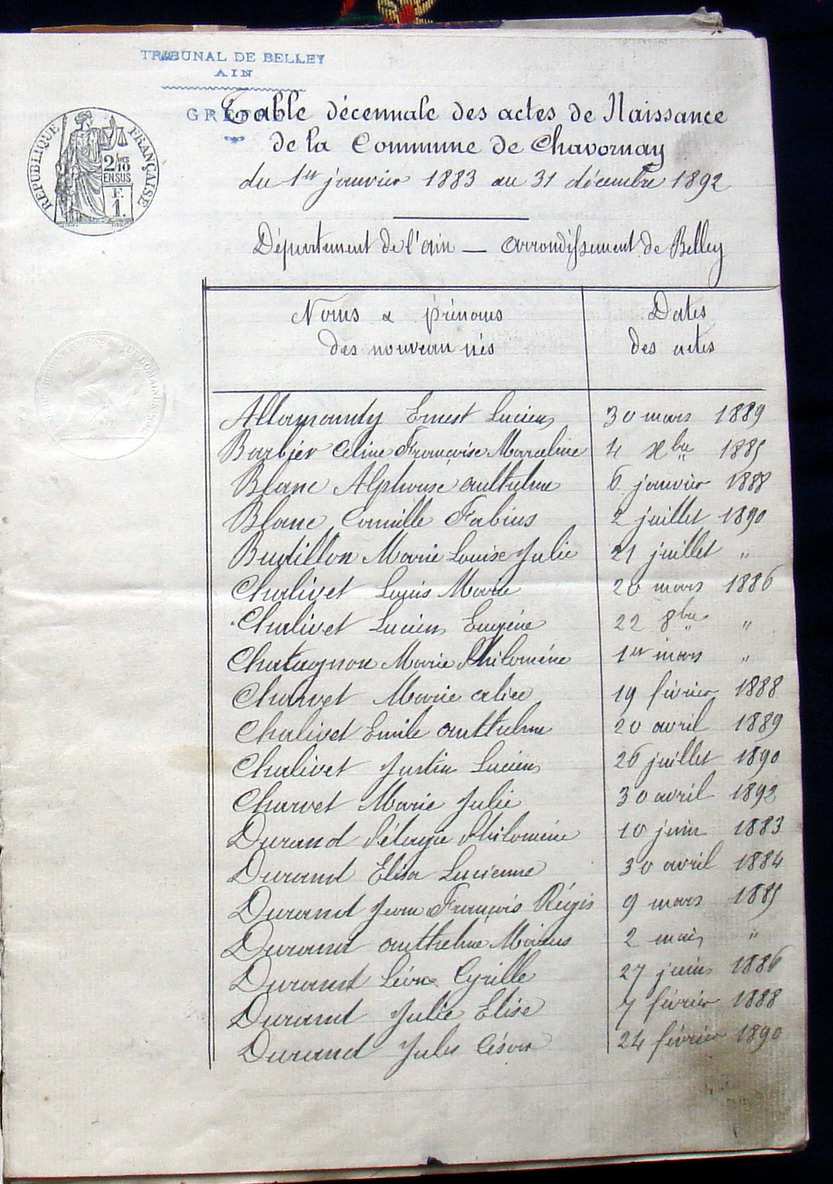 TRIBUNAL DE BELLEY
AIN
GREFFE
Table décennale des actes de Naissance
de la Commune de Chavornay
du 1er janvier 1883 au 31 décembre 1892
RÉPUBLIQUE FRANÇAISE
2/10
EN SUS
F.
1.
Département de l'Ain — Arrondissement de Belley
Noms & prénoms
des nouveau nés
Dates
des actes
Allamandy Ernest Lucien 30 mars 1889
Barbier Céline Françoise Marceline 4 Xbre 1885
Blanc Alphonse Anthelme 6 janvier 1888
Blanc Camille Fabius 2 juillet 1890
Budillon Marie Louise Julie 21 juillet "
Chalivet Louis Marie 20 mars 1886
Chalivet Lucien Eugène 22 8bre "
Chatagnon Marie Philomène 1er mars "
Charvet Marie Alice 19 février 1888
Chalivet Emile Anthelme 20 avril 1889
Chalivet Justin Lucien 26 juillet 1890
Charvet Marie Julie 30 avril 1892
Durand Pélagie Philomène 10 juin 1883
Durand Elisa Lucienne 30 avril 1884
Durand Jean François Régis 9 mars 1885
Durand Anthelme Marius 2 mai "
Durand Léon Cyrille 27 juin 1886
Durand Julie Elise 7 février 1888
Durand Jules César 24 février 1890